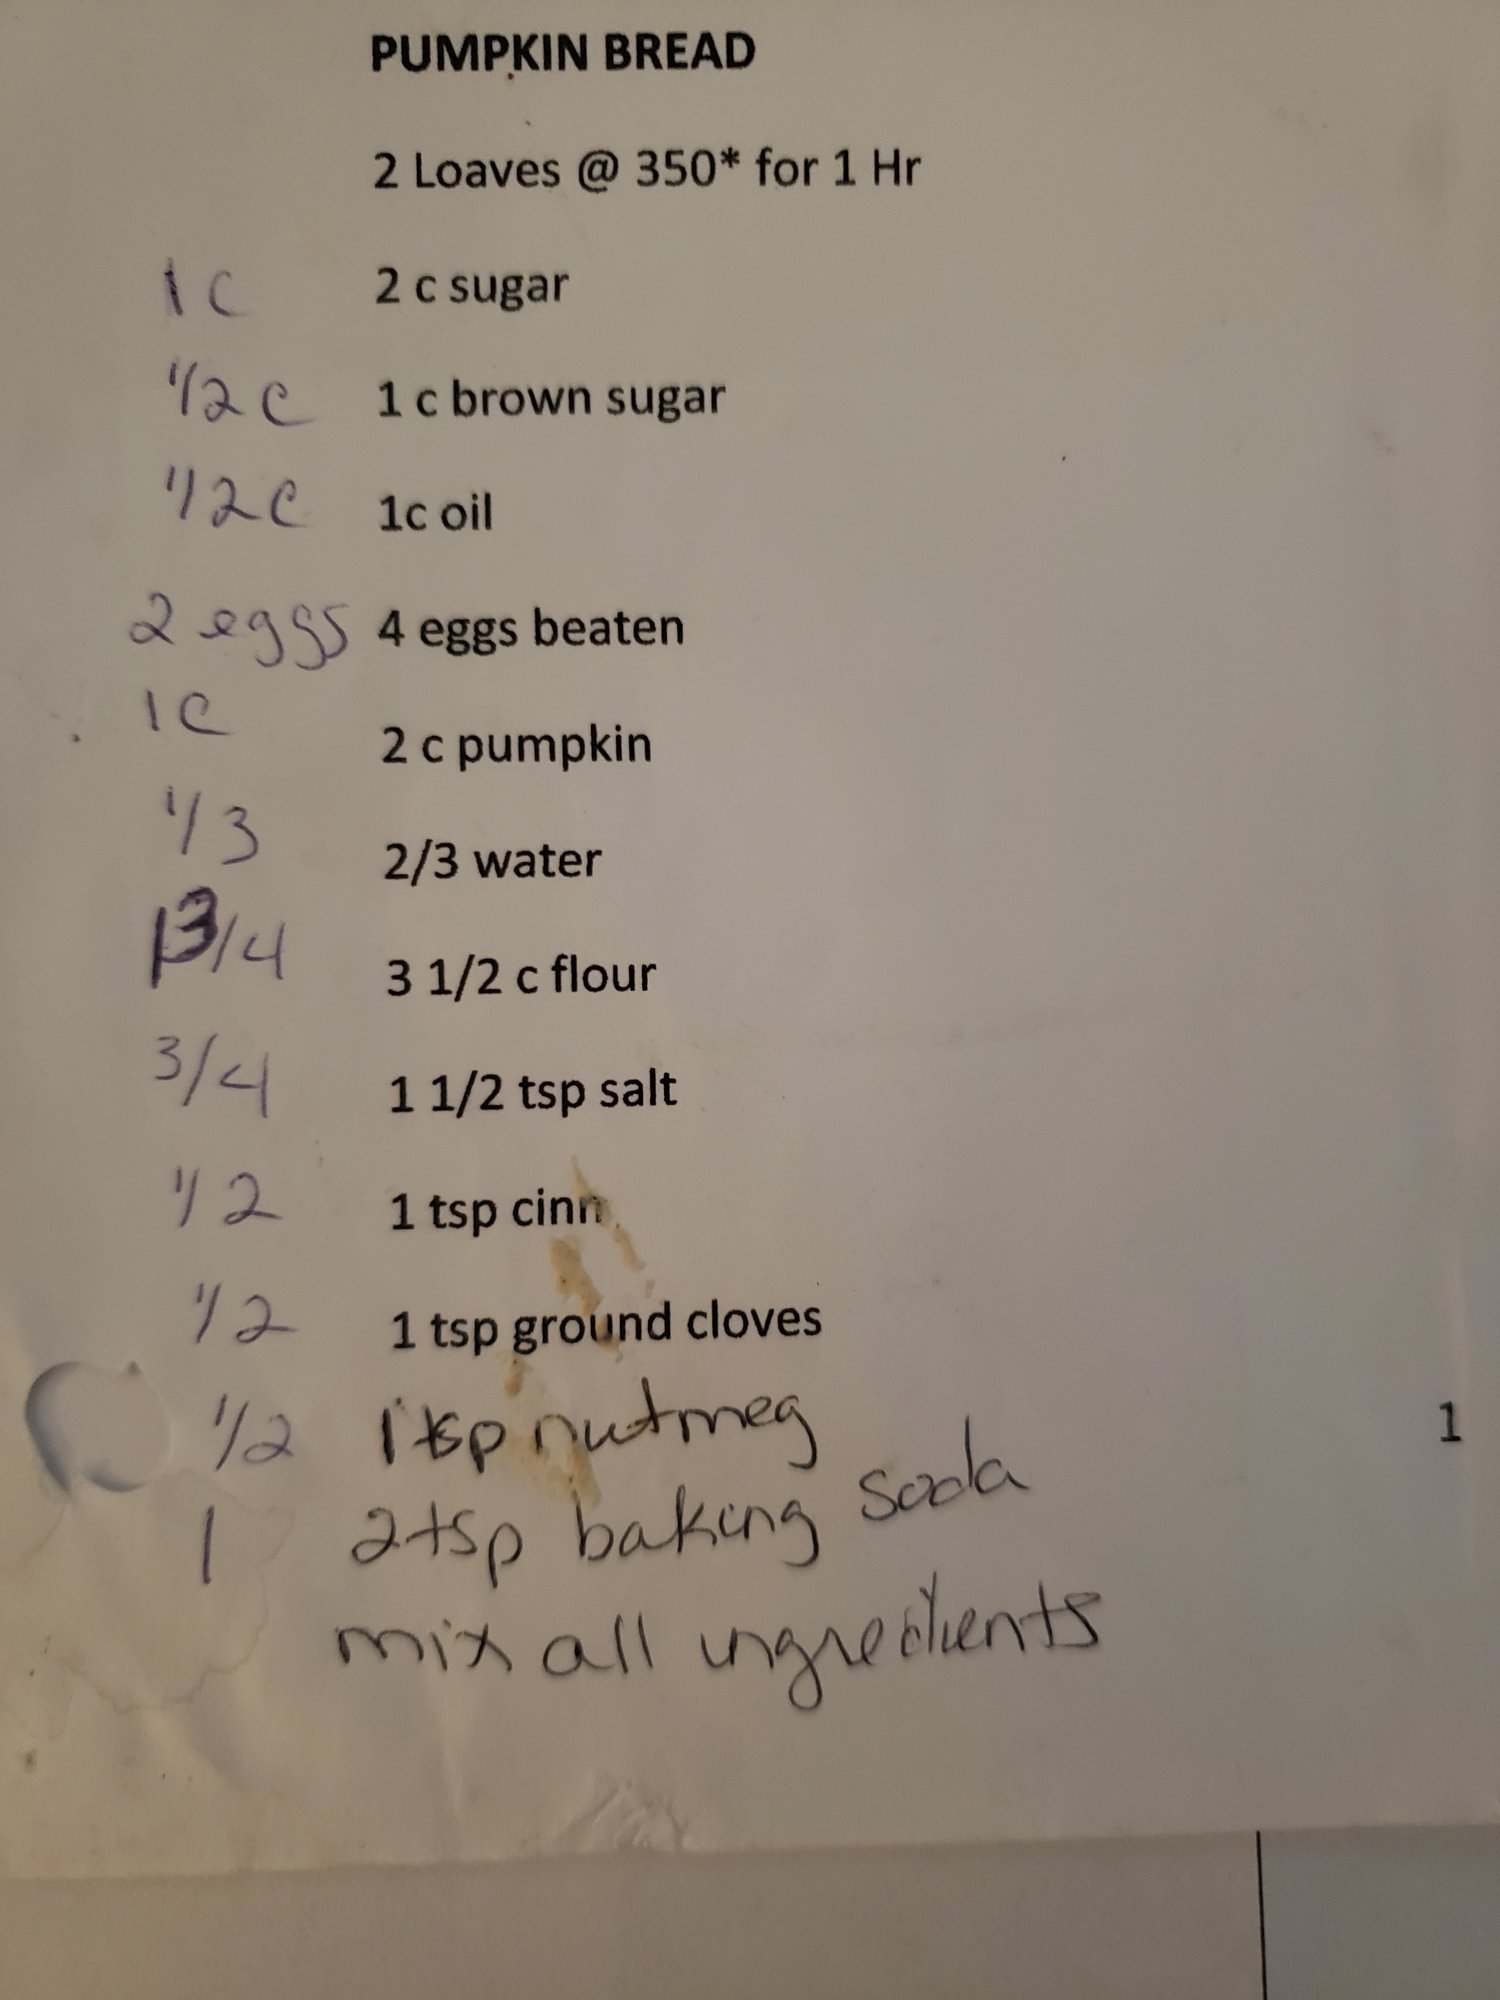 PUMPKIN BREAD
2 Loaves @ 350* for 1 Hr
1 c 2 c sugar
1/2 c 1 c brown sugar
1/2 c 1c oil
2 eggs 4 eggs beaten
1 c 2 c pumpkin
1/3 2/3 water
1 3/4 3 1/2 c flour
3/4 1 1/2 tsp salt
1/2 1 tsp cinn
1/2 1 tsp ground cloves
1/2 1 tsp nutmeg
1
1 2 tsp baking soda
mix all ingredients